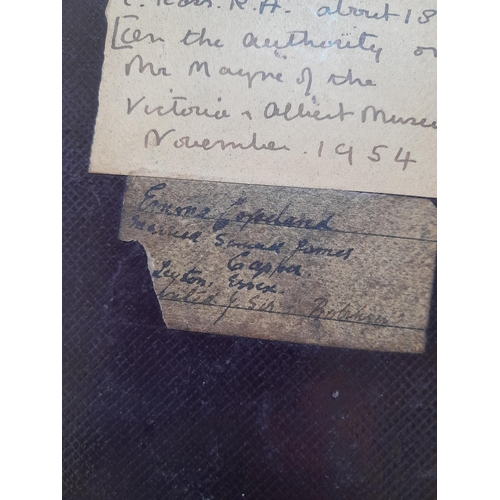 R.A. about 18
[on the authority o
Mr Mayne of the
Victoria & Albert Museu
November. 1954
Emma Copeland
married Samuel James
Capper.
Leyton, Essex.